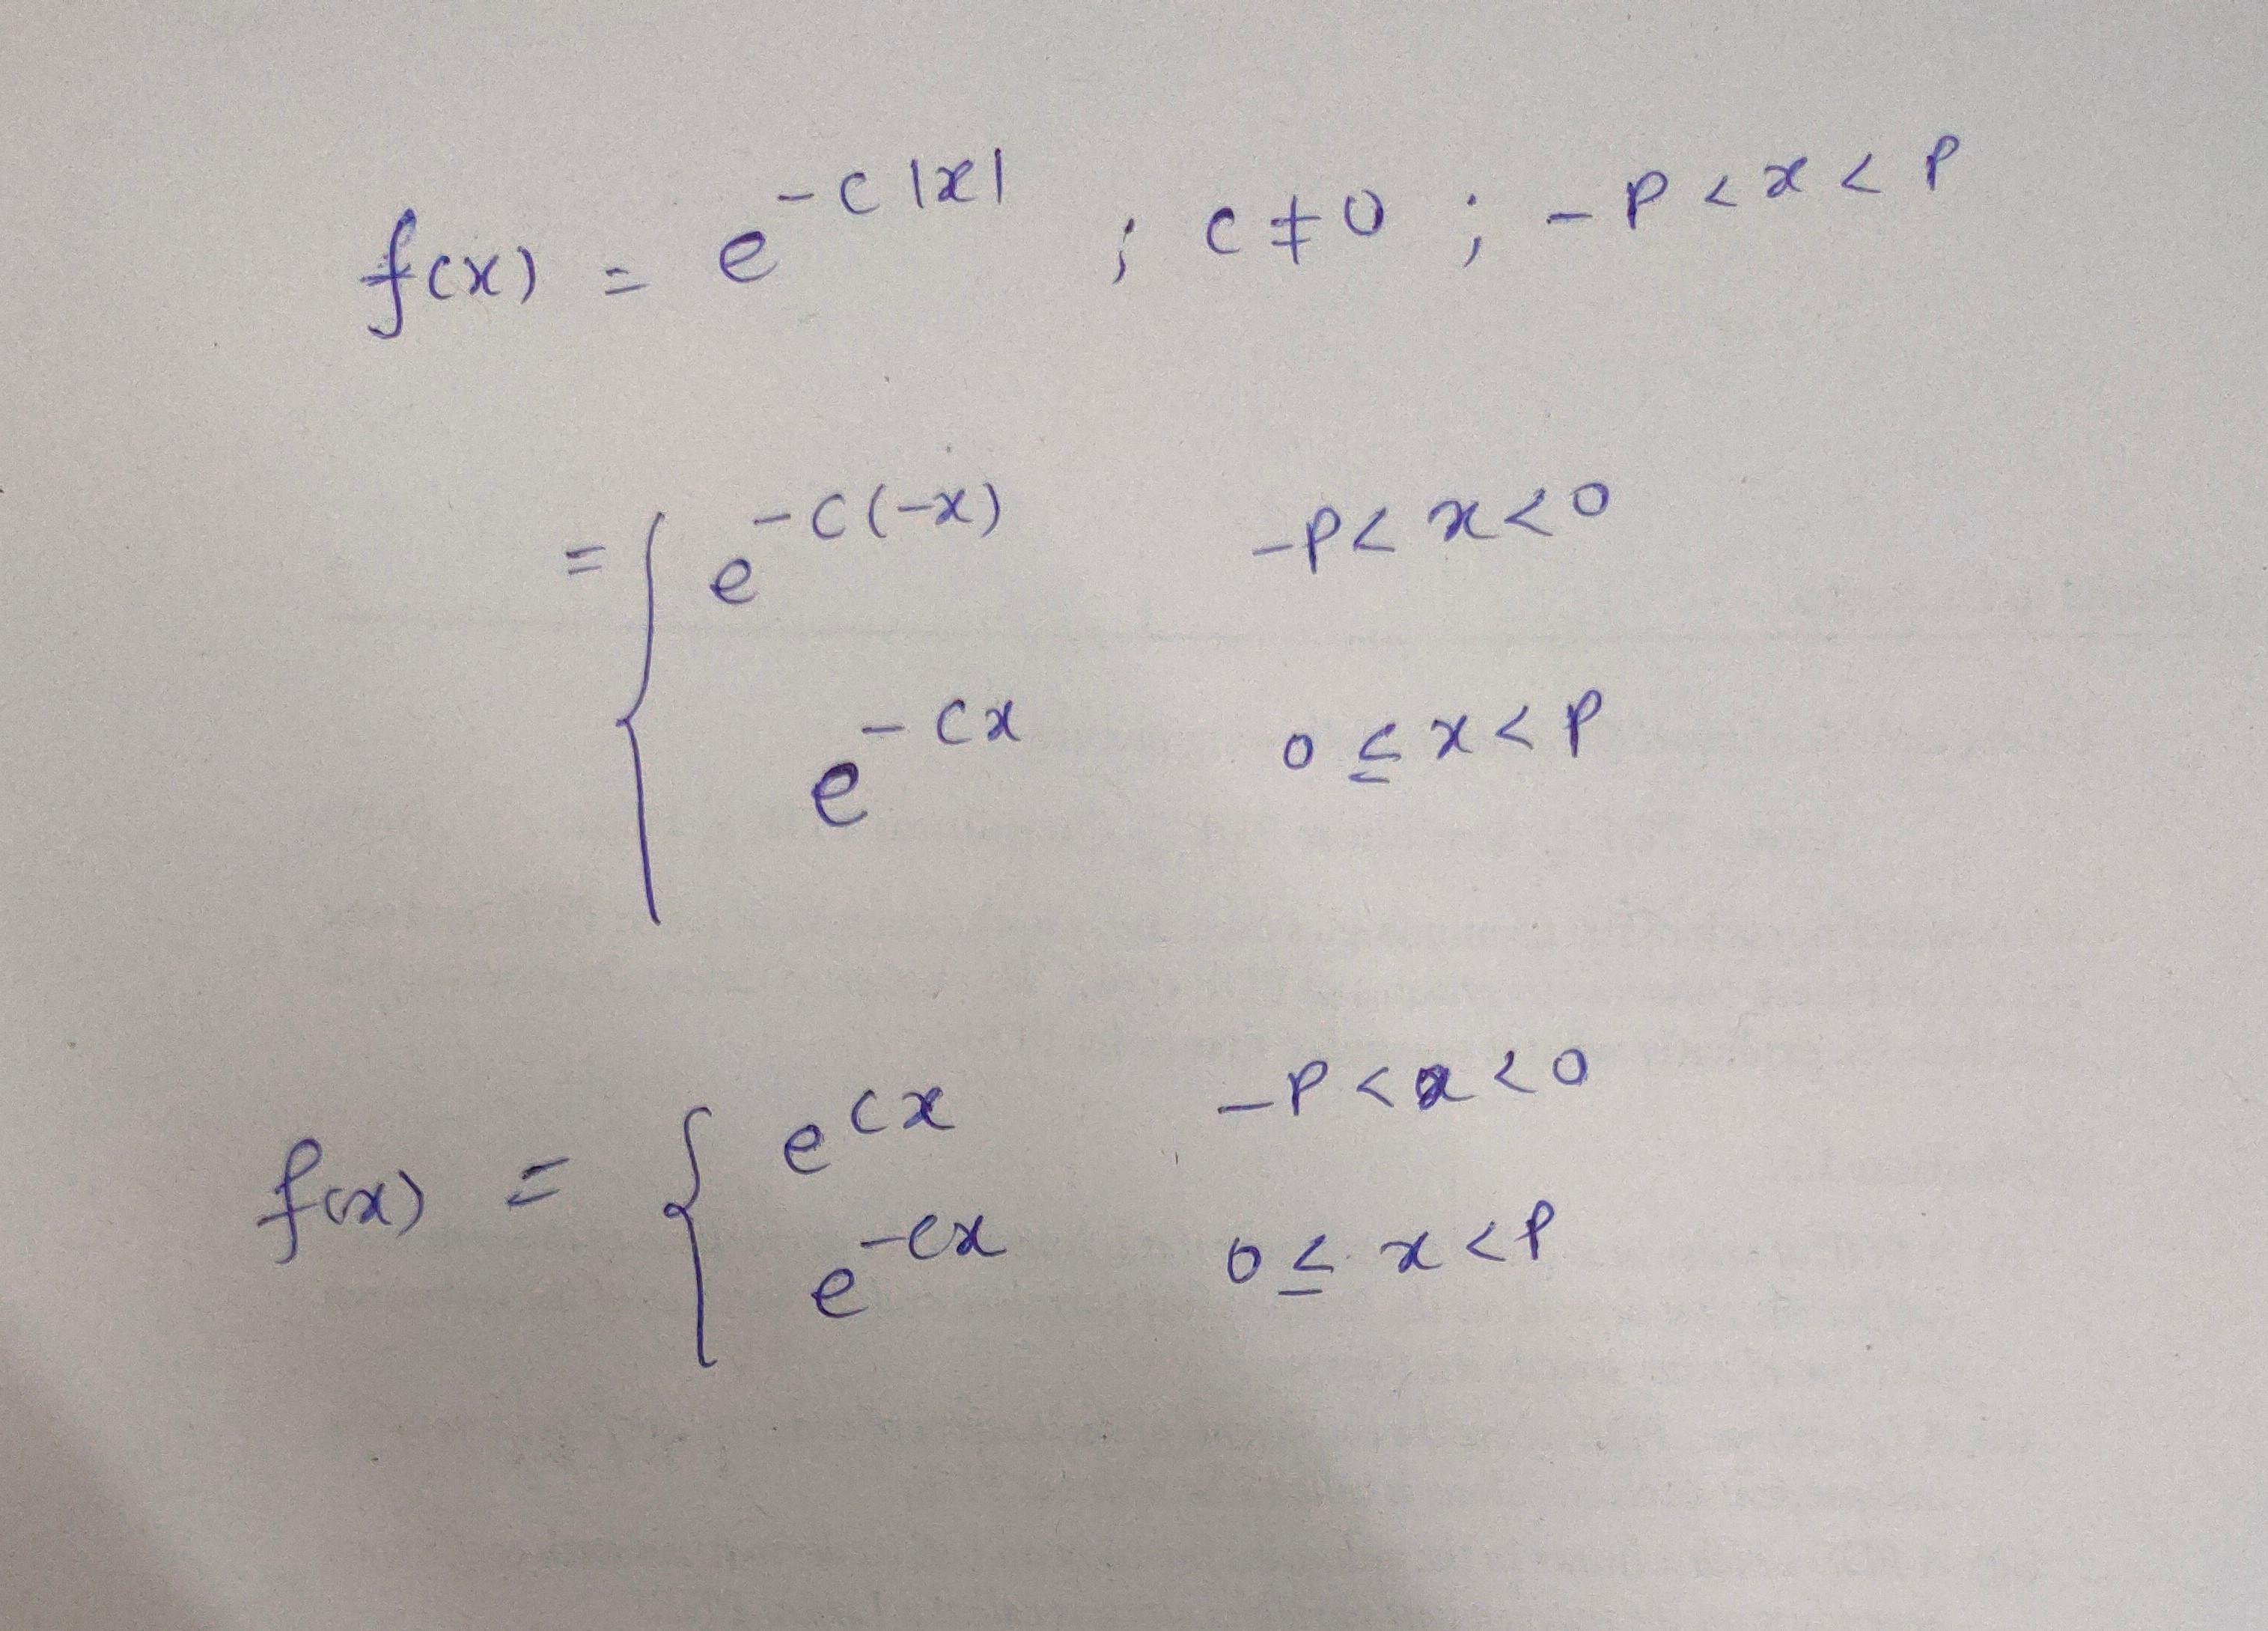 f(x) = e^{-c|x|} ; c ≠ 0 ; -p < x < p
= { e^{-c(-x)} -p < x < 0
e^{-cx} 0 ≤ x < p
f(x) = { e^{cx} -p < x < 0
e^{-cx} 0 ≤ x < p